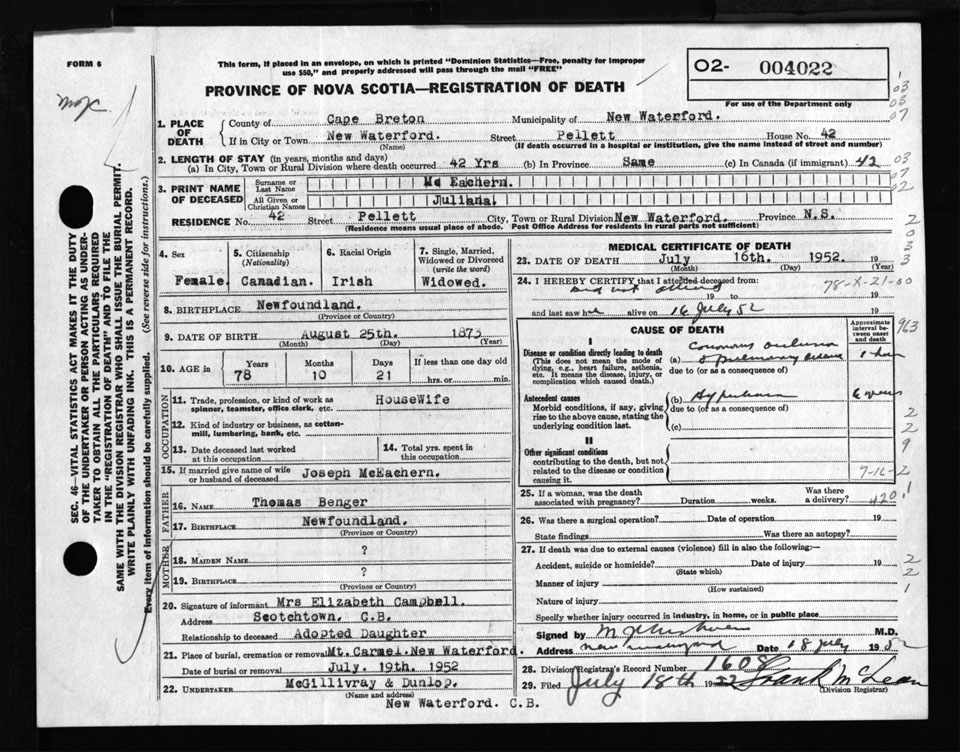 FORM 6
This form, if placed in an envelope, on which is printed "Dominion Statistics—Free, penalty for improper
use $50," and properly addressed will pass through the mail "FREE"
PROVINCE OF NOVA SCOTIA—REGISTRATION OF DEATH
02- 004022
For use of the Department only
1. PLACE OF DEATH
County of Cape Breton Municipality of New Waterford.
If in City or Town New Waterford. Street Pellett House No. 42
(Name) (If death occurred in a hospital or institution, give the name instead of street and number)
2. LENGTH OF STAY (in years, months and days)
(a) In City, Town or Rural Division where death occurred 42 Yrs (b) In Province Same (c) In Canada (if immigrant) 42
3. PRINT NAME OF DECEASED
Surname or Last Name Mc Eachern.
All Given or Christian Names Juliana.
RESIDENCE No. 42 Street Pellett City, Town or Rural Division New Waterford. Province N.S.
(Residence means usual place of abode. Post Office Address for residents in rural parts not sufficient)
4. Sex
Female.
5. Citizenship (Nationality)
Canadian.
6. Racial Origin
Irish
7. Single, Married, Widowed or Divorced (write the word)
Widowed.
8. BIRTHPLACE Newfoundland.
(Province or Country)
9. DATE OF BIRTH August 25th. 1873
(Month) (Day) (Year)
10. AGE in
Years Months Days If less than one day old
78 10 21 hrs. or min.
OCCUPATION
11. Trade, profession, or kind of work as spinner, teamster, office clerk, etc. HouseWife
12. Kind of industry or business, as cotton-mill, lumbering, bank, etc.
13. Date deceased last worked at this occupation
14. Total yrs. spent in this occupation
15. If married give name of wife or husband of deceased Joseph McEachern.
FATHER
16. NAME Thomas Benger
17. BIRTHPLACE Newfoundland.
(Province or Country)
MOTHER
18. MAIDEN NAME ?
19. BIRTHPLACE ?
(Province or Country)
20. Signature of informant Mrs Elizabeth Campbell.
Address Scotchtown. C.B.
Relationship to deceased Adopted Daughter
21. Place of burial, cremation or removal Mt. Carmel. New Waterford.
Date of burial or removal July. 19th. 1952
22. UNDERTAKER McGillivray & Dunlop.
(Name and address)
New Waterford. C.B.
MEDICAL CERTIFICATE OF DEATH
23. DATE OF DEATH July 16th. 1952. 19
(Month) (Day) (Year)
24. I HEREBY CERTIFY that I attended deceased from:
did not attend 19 to 19
78-X-21-00
and last saw h alive on 16 July 52 19
CAUSE OF DEATH
Approximate interval between onset and death
I
Disease or condition directly leading to death
(This does not mean the mode of dying, e.g., heart failure, asthenia, etc. It means the disease, injury, or complication which caused death.)
(a) Coronary
due to (or as a consequence of)
Antecedent causes
Morbid conditions, if any, giving rise to the above cause, stating the underlying condition last.
(b)
6 years
due to (or as a consequence of)
(c)
II
Other significant conditions
contributing to the death, but not related to the disease or condition causing it.
7-16-2
25. If a woman, was the death associated with pregnancy? Duration weeks. Was there a delivery? 420.1
26. Was there a surgical operation? Date of operation 19
State findings Was there an autopsy?
27. If death was due to external causes (violence) fill in also the following:—
Accident, suicide or homicide? Date of injury 19
(State which)
Manner of injury
(How sustained)
Nature of injury
Specify whether injury occurred in industry, in home, or in public place
Signed by M.D.
Address New Waterford Date 18 July 1952
28. Division Registrar's Record Number 1608
29. Filed July 18th 1952 Frank McLean
(Division Registrar)
SEC. 46—VITAL STATISTICS ACT MAKES IT THE DUTY
OF THE UNDERTAKER OR PERSON ACTING AS UNDER-
TAKER TO OBTAIN ALL THE PARTICULARS REQUIRED
IN THE "REGISTRATION OF DEATH" AND TO FILE THE
SAME WITH THE DIVISION REGISTRAR WHO SHALL ISSUE THE BURIAL PERMIT.
WRITE PLAINLY WITH UNFADING INK. THIS IS A PERMANENT RECORD.
Every item of information should be carefully supplied. (See reverse side for instructions.)
1
03
03
07
03
07
02
2
0
3
3
963
2
2
9
2
2
1